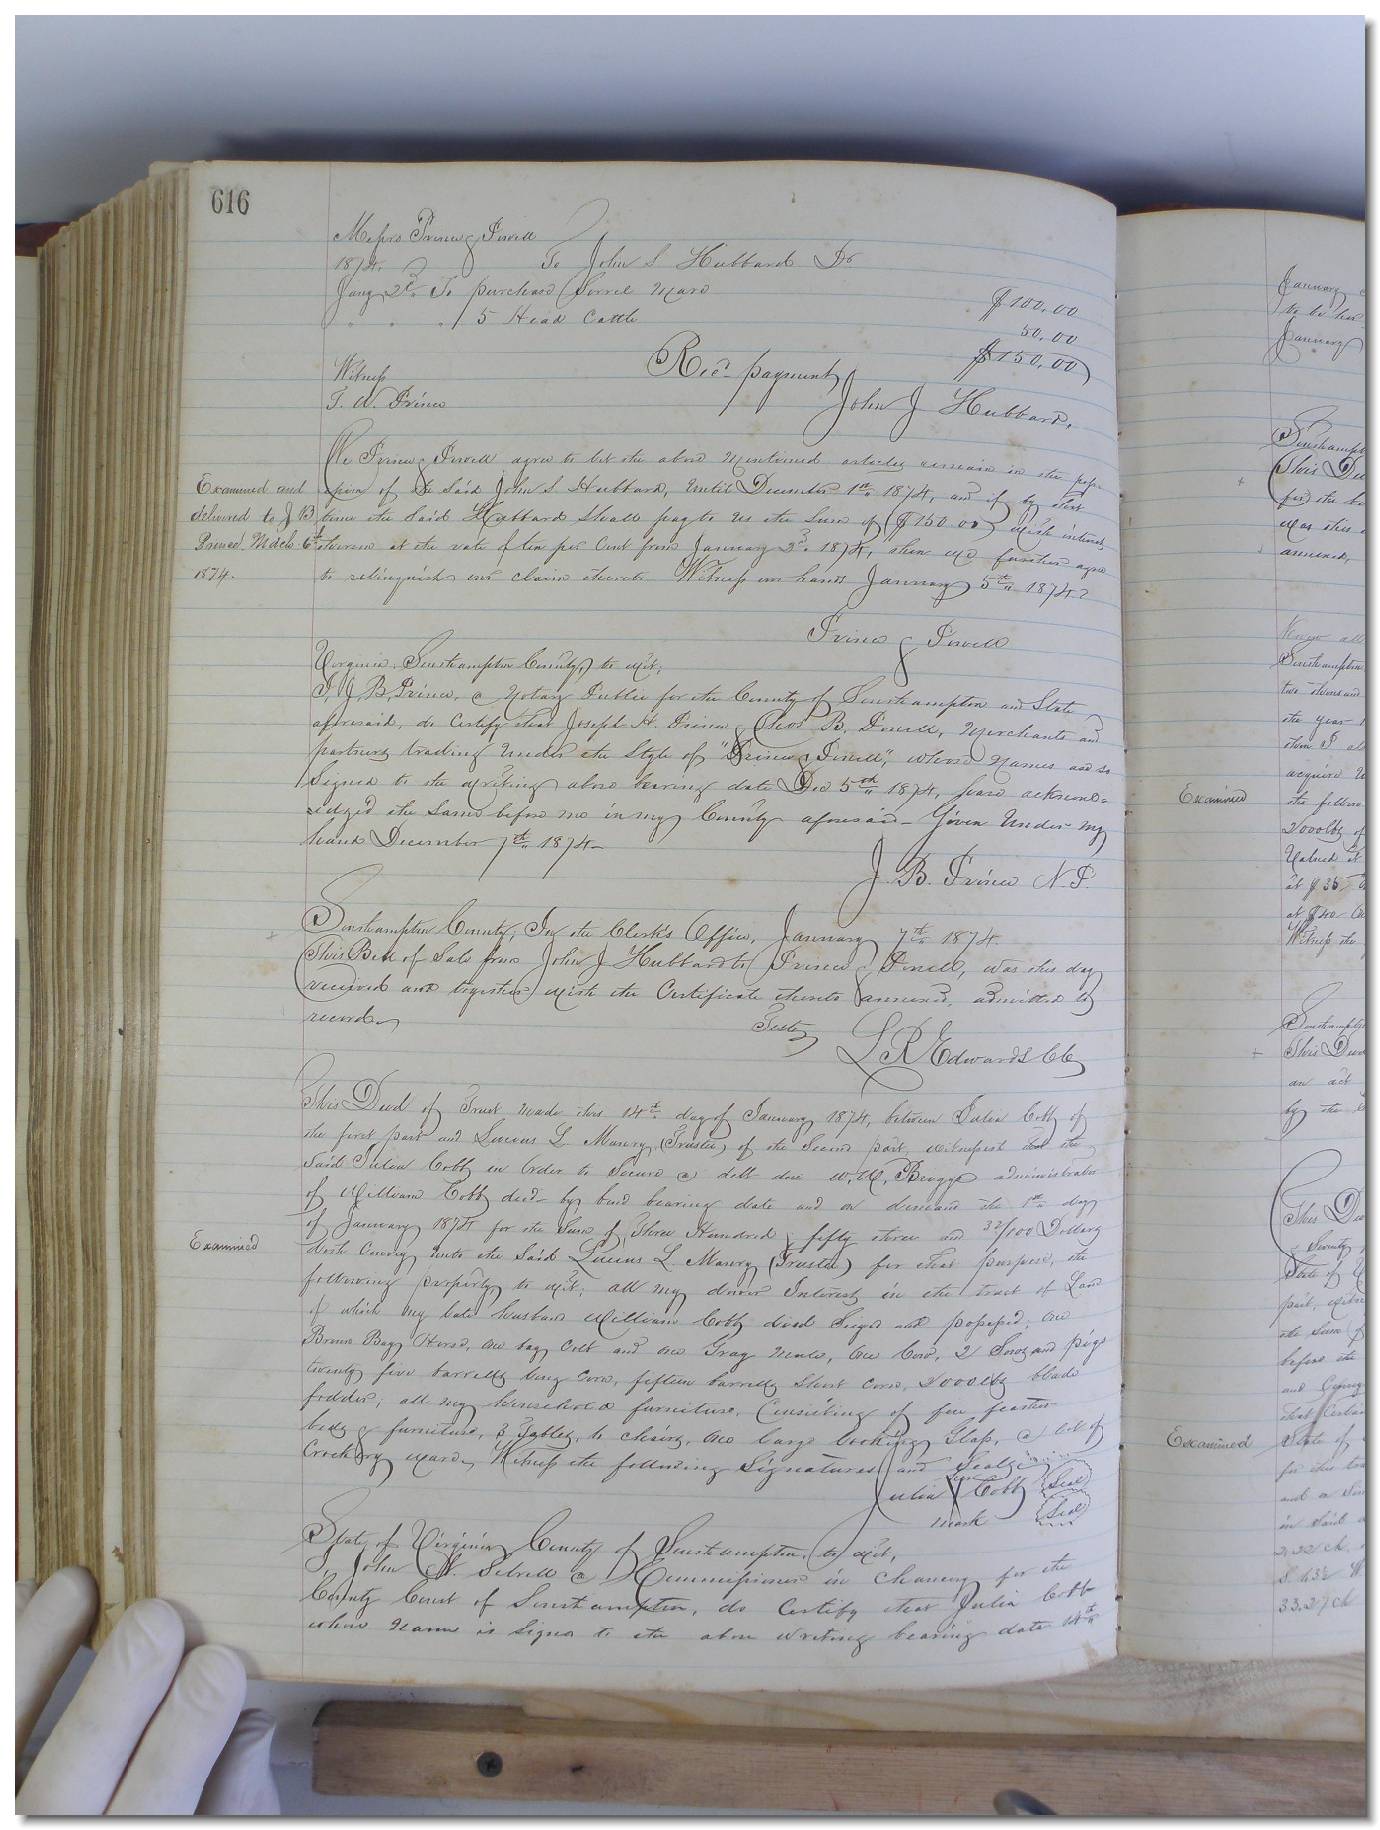 616
Messrs Prince & Powell
1874. To John S Hubbard Dr
Jany 2d. To purchase Sorrel Mare $100.00
" " " " 5 Head Cattle 50.00
$150.00
Recd payment
Witness
John J Hubbard.
T. W. Prince
We Prince & Powell agree to let the above mentioned articles remain in the posses
Examined and
sion of the Said John S Hubbard, Until December 1st 1874, and if by that
delivered to J B
time the Said Hubbard Shall pay to us the Sum of ($150.00) with interest
Prince March 6th
thereon at the rate of ten per Cent from January 2d. 1874, then we further agree
1874.
to relinquish our claim thereto Witness our hands January 5th 1874
Prince & Powell
Virginia, Southampton County, to wit:
I, J, B Prince, a Notary Public for the County of Southampton and State
aforesaid, do Certify that Joseph H. Prince & B. Powell, Merchants and
partners trading Under the Style of "Prince & Powell", whose Names are so
Signed to the writing above bearing date Dec 5th 1874, have acknowl=
edged the Same before me in my County aforesaid - Given Under my
hand December 7th 1874-
J. B. Prince N. P.
Southampton County, In the Clerk's Office, January 7th 1874.
This Bill of Sale from John J Hubbard to Prince & Powell, was this day
received and together with the Certificate thereto annexed, admitted to
record
Teste
L R Edwards Clk
This Deed of Trust made this 14th day of January 1874, between Julia Cobb of
the first part and Lucius L Manry, (Trustee) of the Second part, witnesseth that the
Said Julia Cobb in Order to Secure a debt due W. W. Briggs administrator
of William Cobb decd- by bond bearing date and on demand the 1st day
of January 1874 for the Sum of Three Hundred & fifty three and 32/100 Dollars
Examined
doth Convey unto the Said Lucius L. Manry (Trustee) for that purpose, the
following property to wit: all my dower Interest in the tract of Land
of which my late husband William Cobb died Siezed and possessed, one
Brown Bay Horse, one bay Colt and one Gray Mule, One Cow, 2 Sows and pigs
twenty five barrells long Corn, fifteen barrells Short Corn, 2000 lbs blade
fodder, all my household furniture, Consisting of four feather
beds & furniture, 3 Tables, 10 chairs, One large looking Glass, a lot of
Crockery ware, Witness the following Signatures and Seals
Julia X Cobb Seal
mark Seal
State of Virginia County of Southampton, to wit,
I, John W. Sebrell a Commissioner in Chancery for the
County Court of Southampton, do Certify that Julia Cobb
whose Name is Signed to the above writing bearing date 14th
January
to be
January
Southampt
This De
for the
was this
annexed,
Know all
Southampton
two thousand
the year
them I
acquire
Examined
the follow
2000 lbs of
Valued at
at $35
at $40
Witness the
Southampton
This Deed
an act
by the
This De
& Seventy
State of
part, witne
the Sum of
before the
and Convey
that Certain
Examined
State of
for the
and a
in Said
33.27 ch